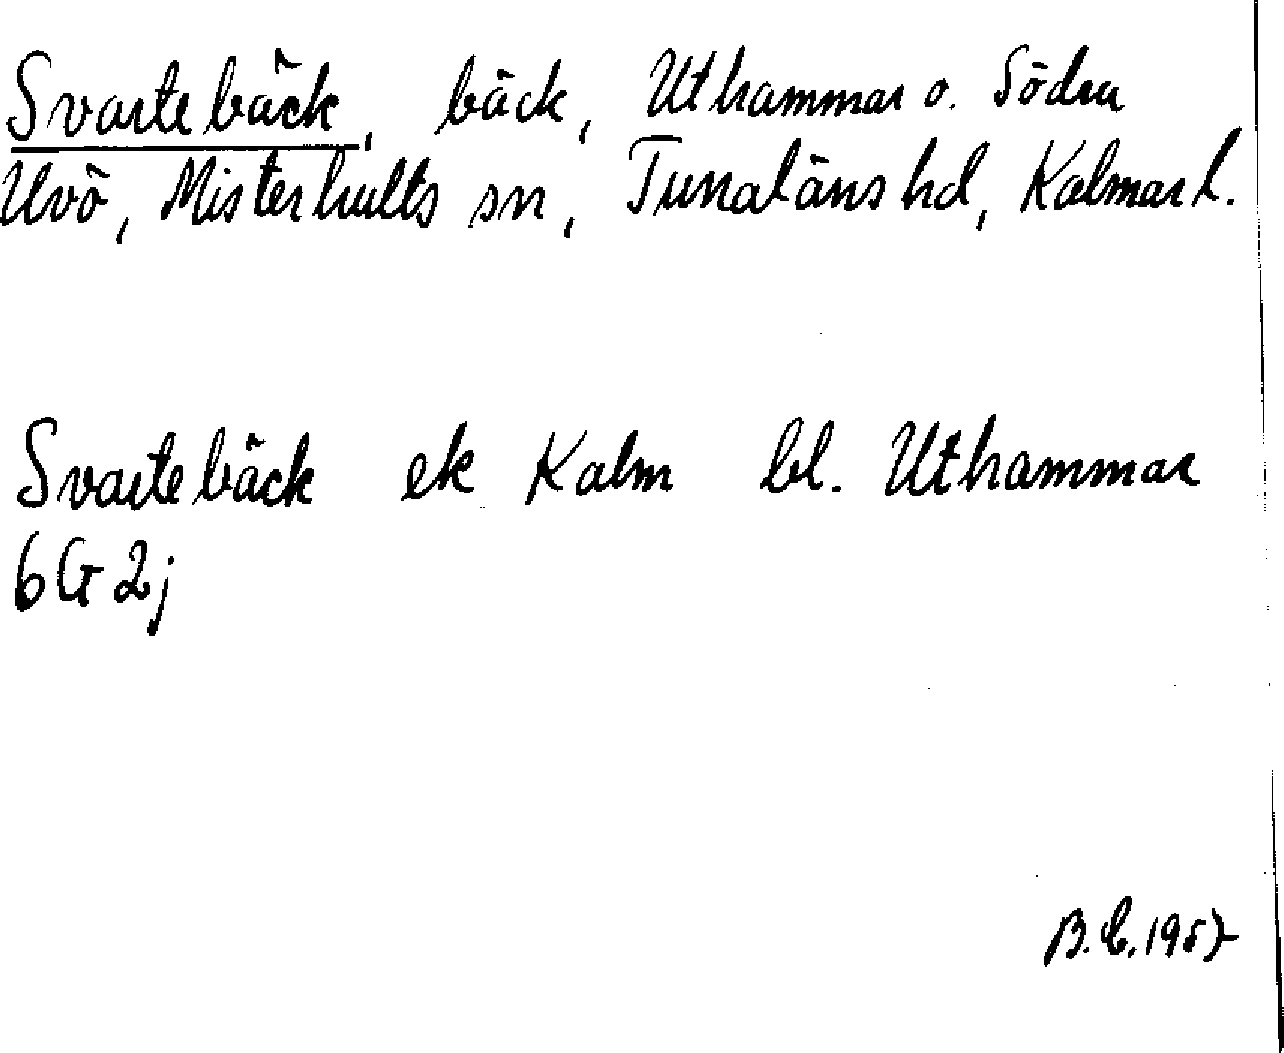 Svartebäck, bäck, Uthammar o. Södra
Uvö, Misterhults sn, Tunaläns hd, Kalmar l.
Svartebäck ek Kalm bl. Uthammar
6G2j
B.E. 1957